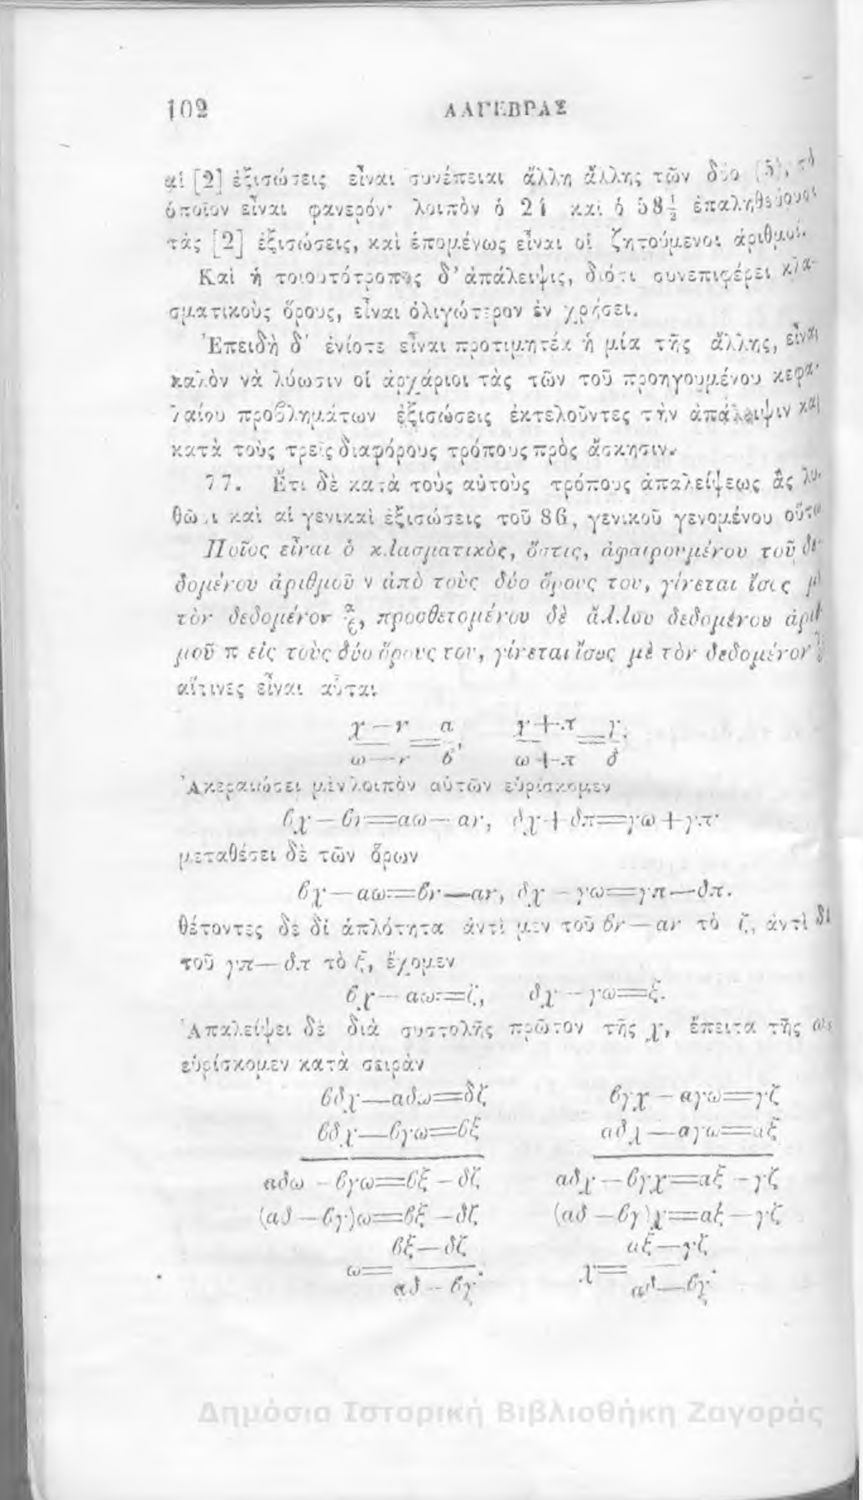 102 ΑΛΓΕΒΡΑΣ
αἱ [2] ἐξισώσεις εἶναι συνέπειαι ἄλλη ἄλλης τῶν δύο (5), τὸ
ὁποῖον εἶναι φανερόν· λοιπὸν ὁ 24 καὶ ὁ 58½ ἐπαληθεύουσι
τὰς [2] ἐξισώσεις, καὶ ἑπομένως εἶναι οἱ ζητούμενοι ἀριθμοί.
Καὶ ἡ τοιουτότροπος δ' ἀπάλειψις, διότι συνεπιφέρει κλα-
σματικοὺς ὅρους, εἶναι ὀλιγώτερον ἐν χρήσει.
Ἐπειδὴ δ' ἐνίοτε εἶναι προτιμητέα ἡ μία τῆς ἄλλης, εἶναι
καλὸν νὰ λύωσιν οἱ ἀρχάριοι τὰς τῶν τοῦ προηγουμένου κεφα-
λαίου προβλημάτων ἐξισώσεις ἐκτελοῦντες τὴν ἀπάλειψιν καὶ
κατὰ τοὺς τρεῖς διαφόρους τρόπους πρὸς ἄσκησιν.
77. Ἔτι δὲ κατὰ τοὺς αὐτοὺς τρόπους ἀπαλείψεως ἂς λυ-
θῶσι καὶ αἱ γενικαὶ ἐξισώσεις τοῦ 86, γενικοῦ γενομένου οὕτω
Ποῖος εἶναι ὁ κλασματικὸς, ὅστις, ἀφαιρουμένου τοῦ δε-
δομένου ἀριθμοῦ ν ἀπὸ τοὺς δύο ὅρους του, γίνεται ἴσος μὲ
τὸν δεδομένον α/β, προσθετομένου δὲ ἄλλου δεδομένου ἀριθ
μοῦ π εἰς τοὺς δύο ὅρους του, γίνεται ἴσος μὲ τὸν δεδομένον
αἵτινες εἶναι αὗται
χ—ν/ω—ν = α/β, χ+π/ω+π = γ/δ.
Ἀκεραιώσει μὲν λοιπὸν αὐτῶν εὑρίσκομεν
βχ—βν=αω—αν, δχ+δπ=γω+γπ·
μεταθέσει δὲ τῶν ὅρων
βχ—αω=βν—αν, δχ—γω=γπ—δπ.
θέτοντες δὲ δι ἁπλότητα ἀντὶ μὲν τοῦ βν—αν τὸ ζ, ἀντὶ δὲ
τοῦ γπ—δπ τὸ ξ, ἔχομεν
βχ—αω=ζ, δχ—γω=ξ.
Ἀπαλείψει δὲ διὰ συστολῆς πρῶτον τῆς χ, ἔπειτα τῆς ω,
εὑρίσκομεν κατὰ σειρὰν
βδχ—αδω=δζ βγχ—αγω=γζ
βδχ—βγω=βξ αδχ—αγω=αξ
αδω—βγω=βξ—δζ αδχ—βγχ=αξ—γζ
(αδ—βγ)ω=βξ—δζ (αδ—βγ)χ=αξ—γζ
ω=βξ—δζ/αδ—βγ. χ=αξ—γζ/αδ—βγ.
Δημόσια Ιστορική Βιβλιοθήκη Ζαγοράς